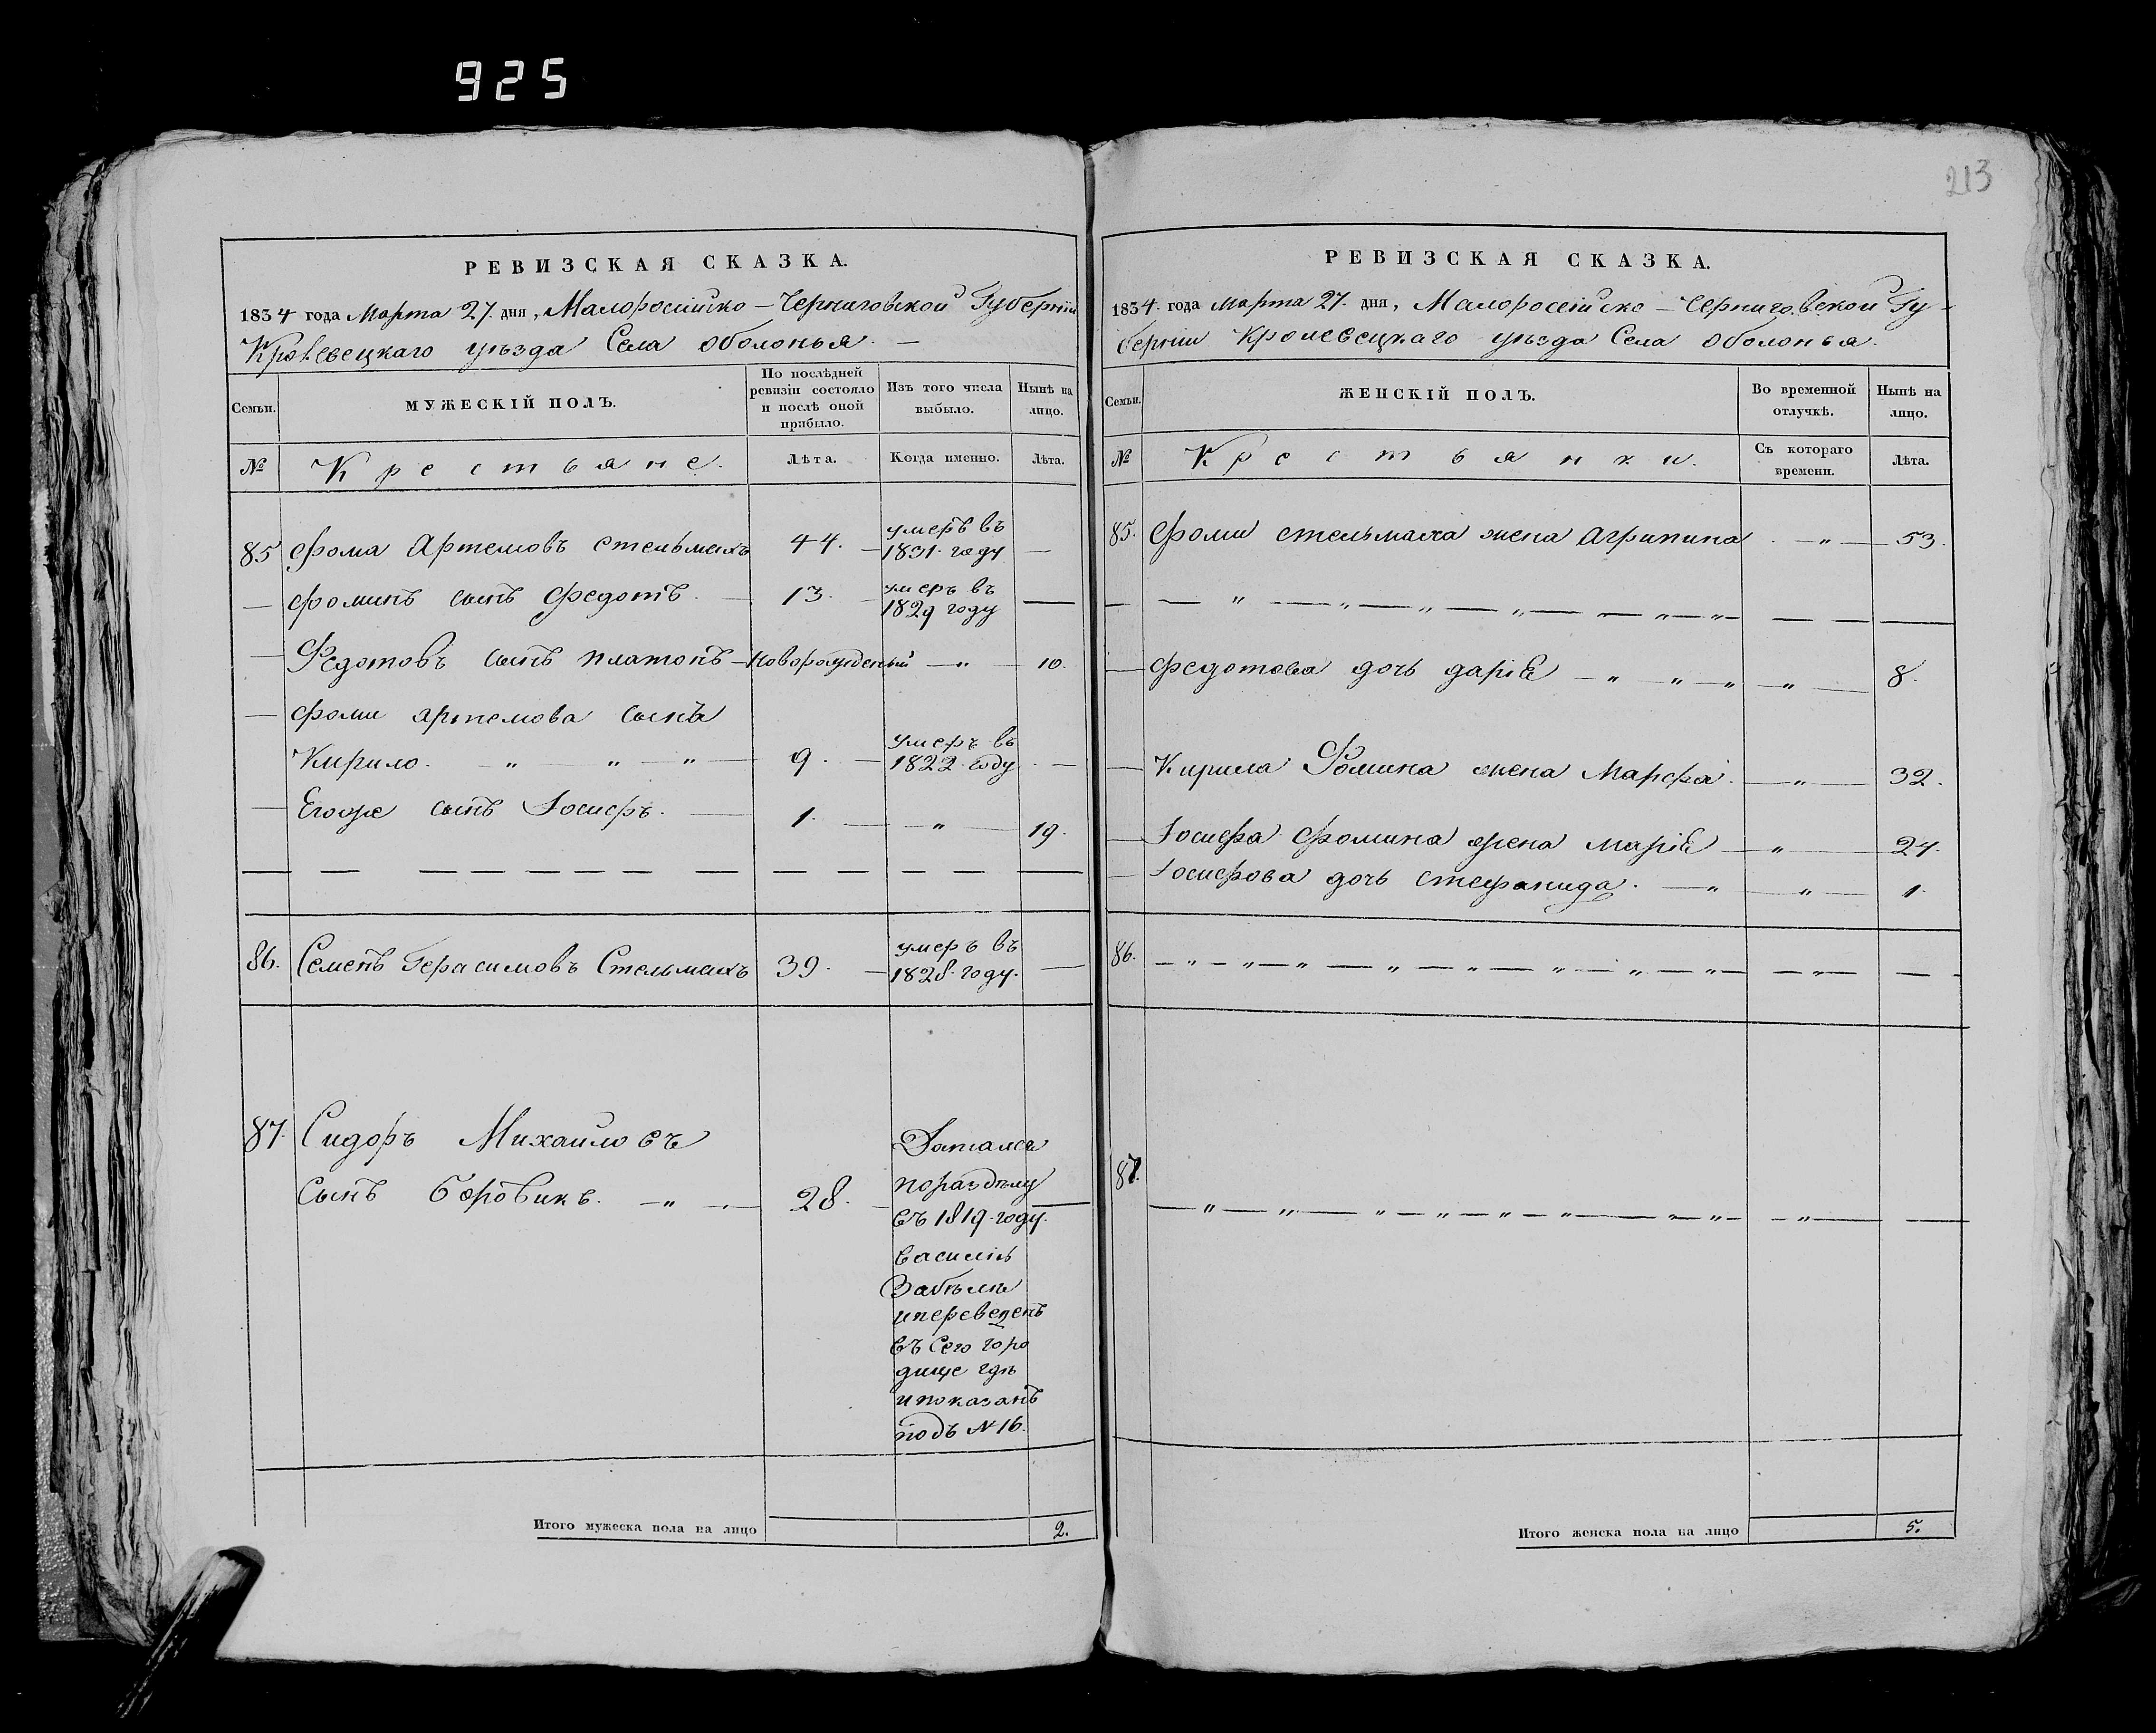 925
213
РЕВИЗСКАЯ СКАЗКА.
1834 года Марта 27. дня, Малоросiйско – Черниговской Губернiи
Кролевецкаго уѣзда Села оболонья. –
Семьи. МУЖЕСКІЙ ПОЛЪ. По послѣдней ревизіи состояло и послѣ оной прибыло. Изъ того числа выбыло. Нынѣ на лицо.
№ Крестьяне. Лѣта. Когда именно. Лѣта.
85 Фома Артемовъ стельмахъ 44. — умеръ въ 1831. году —
— Фоминъ сынъ Федотъ. — 13. — умеръ въ 1829 году —
— Федотовъ сынъ платонъ — новорожденый — „ — 10.
— Фоми артемова сынъ
Кирило. — „ „ — „ — 9. — умеръ въ 1822. году. —
— Егоже сынъ Iосифъ. — 1. — „ — 19.
86. Семенъ Герасимовъ Стельмахъ 39. — умеръ въ 1828. году. —
87. Сидоръ Михайловъ
сынъ боровикъ. — „ — 28. —
Достался
поразделу
въ 1819. году.
василiю
Забѣлѣ
ипереведенъ
въ Село горо
дище гдѣ
ипоказанъ
подъ № 16.
Итого мужеска пола на лицо 2.
РЕВИЗСКАЯ СКАЗКА.
1834. года марта 27. дня, Малоросейско – Черниговской Гу-
бернiи Кролевецкаго уѣзда Села оболонья.
Семьи. ЖЕНСКІЙ ПОЛЪ. Во временной отлучкѣ. Нынѣ на лицо.
№ Крестьянки. Съ котораго времени. Лѣта.
85. Фоми стельмаха жена Агрипина — „ — 53.
— — „ — „ — „ — „ — „ — „ — — —
— Федотова дочь дарiя — „ — „ — „ — „ — 8.
— Кирила Фомина жена Марфа. — „ — 32.
— Iосифа Фомина жена марiя — „ — 24.
— Iосифова дочь стефанида. — „ — „ — 1.
86. — „ — „ — „ — „ — „ — „ — „ — „ — „ — —
87. — „ — „ — „ — „ — „ — „ — „ — „ — „ — —
Итого женска пола на лицо 5.